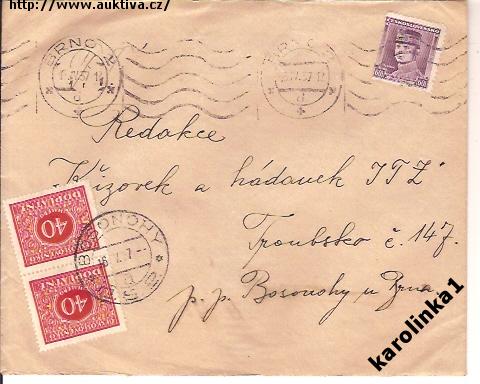 http://www.auktiva.cz/
BRNO
ČESKOSLOVENSKO
Redakce
Křížovek a hádanek ITŽ
Troubsko č. 147.
p. p. Bosonohy u Brna
BOSONOHY
DOPLATNÉ
40
DOPLATNÉ
40
karolinka1